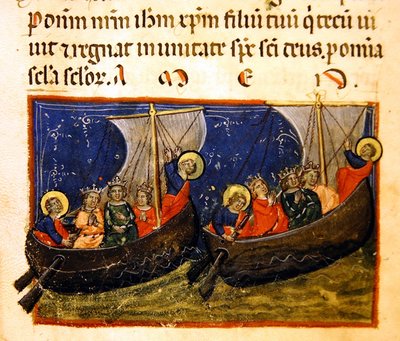 P dnm̄ nrm̄ ihm̄ xp̄m filiū tuū q̄ tecū ui
uit ⁊ regnat in unitate sp̄s sc̄i deus. p omnia
sc̄la sc̄lor. A M E N